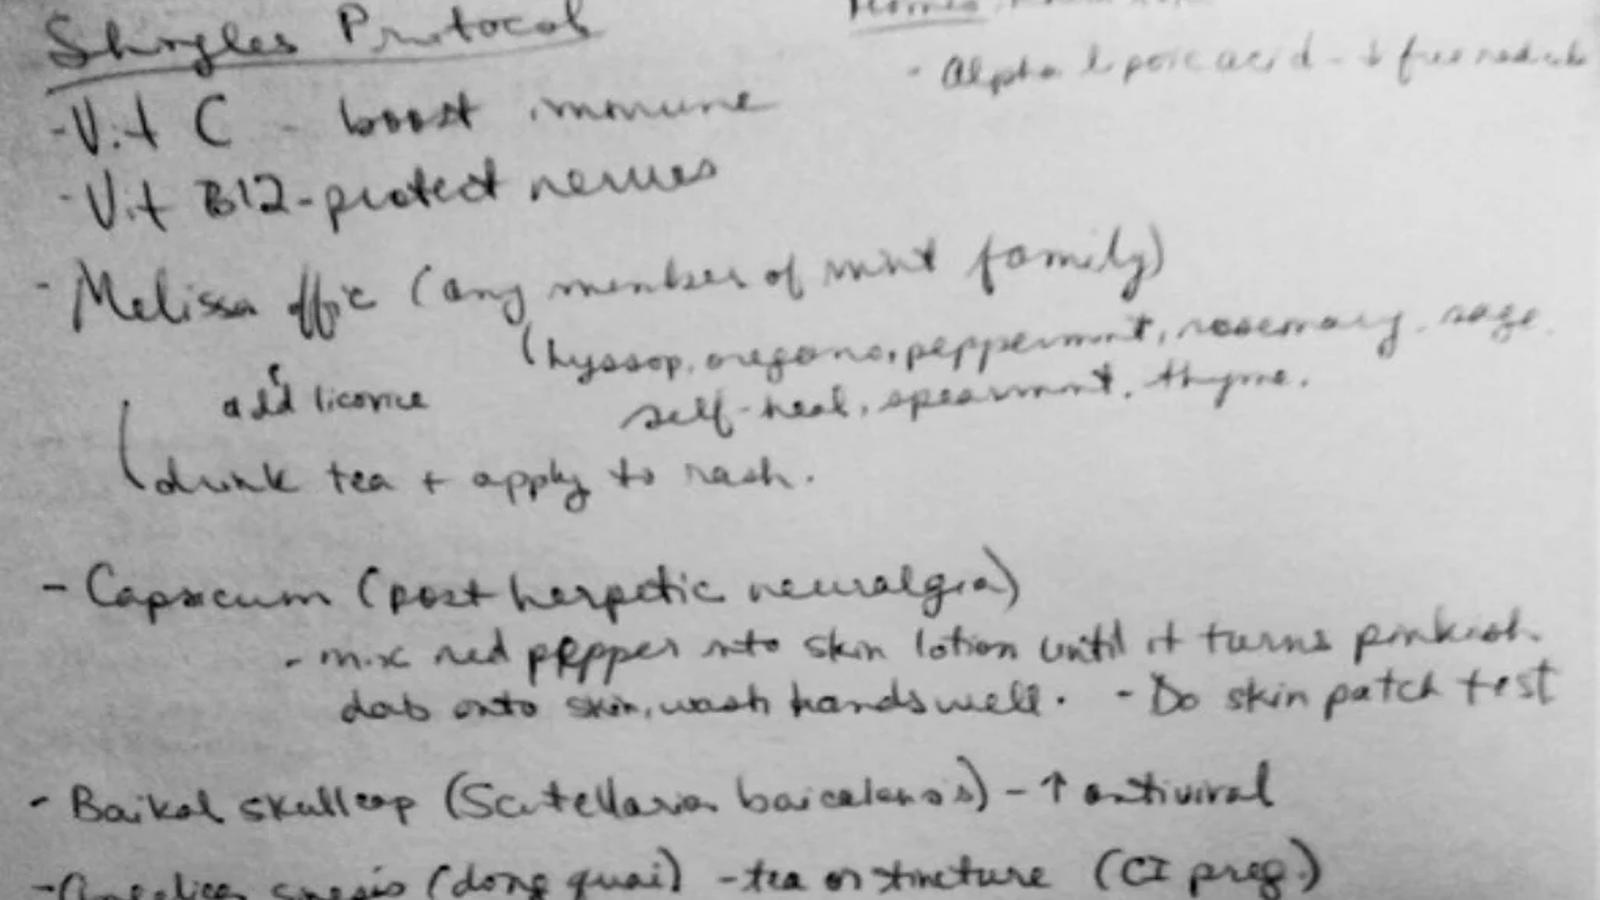 Shingles Protocol
- Alpha lipoic acid - ↓ free radicals
- Vit C - boost immune
- Vit B12 - protect nerves
- Melissa offic (any member of mint family)
(hyssop, oregano, peppermint, rosemary, sage,
add licorice
self-heal, spearmint, thyme.
(drink tea + apply to rash.
- Capsicum (post herpetic neuralgia)
- mix red pepper into skin lotion until it turns pinkish.
dab onto skin, wash hands well. - Do skin patch test
- Baikal skullcap (Scutellaria baicalensis) - ↑ antiviral
- Angelica sinesis (dong quai) - tea or tincture (CI preg.)